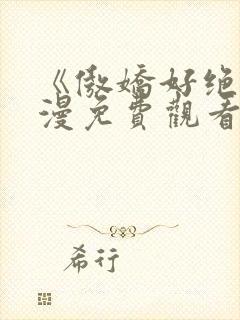 《傲嬌好绝
漫免費觀看
希行